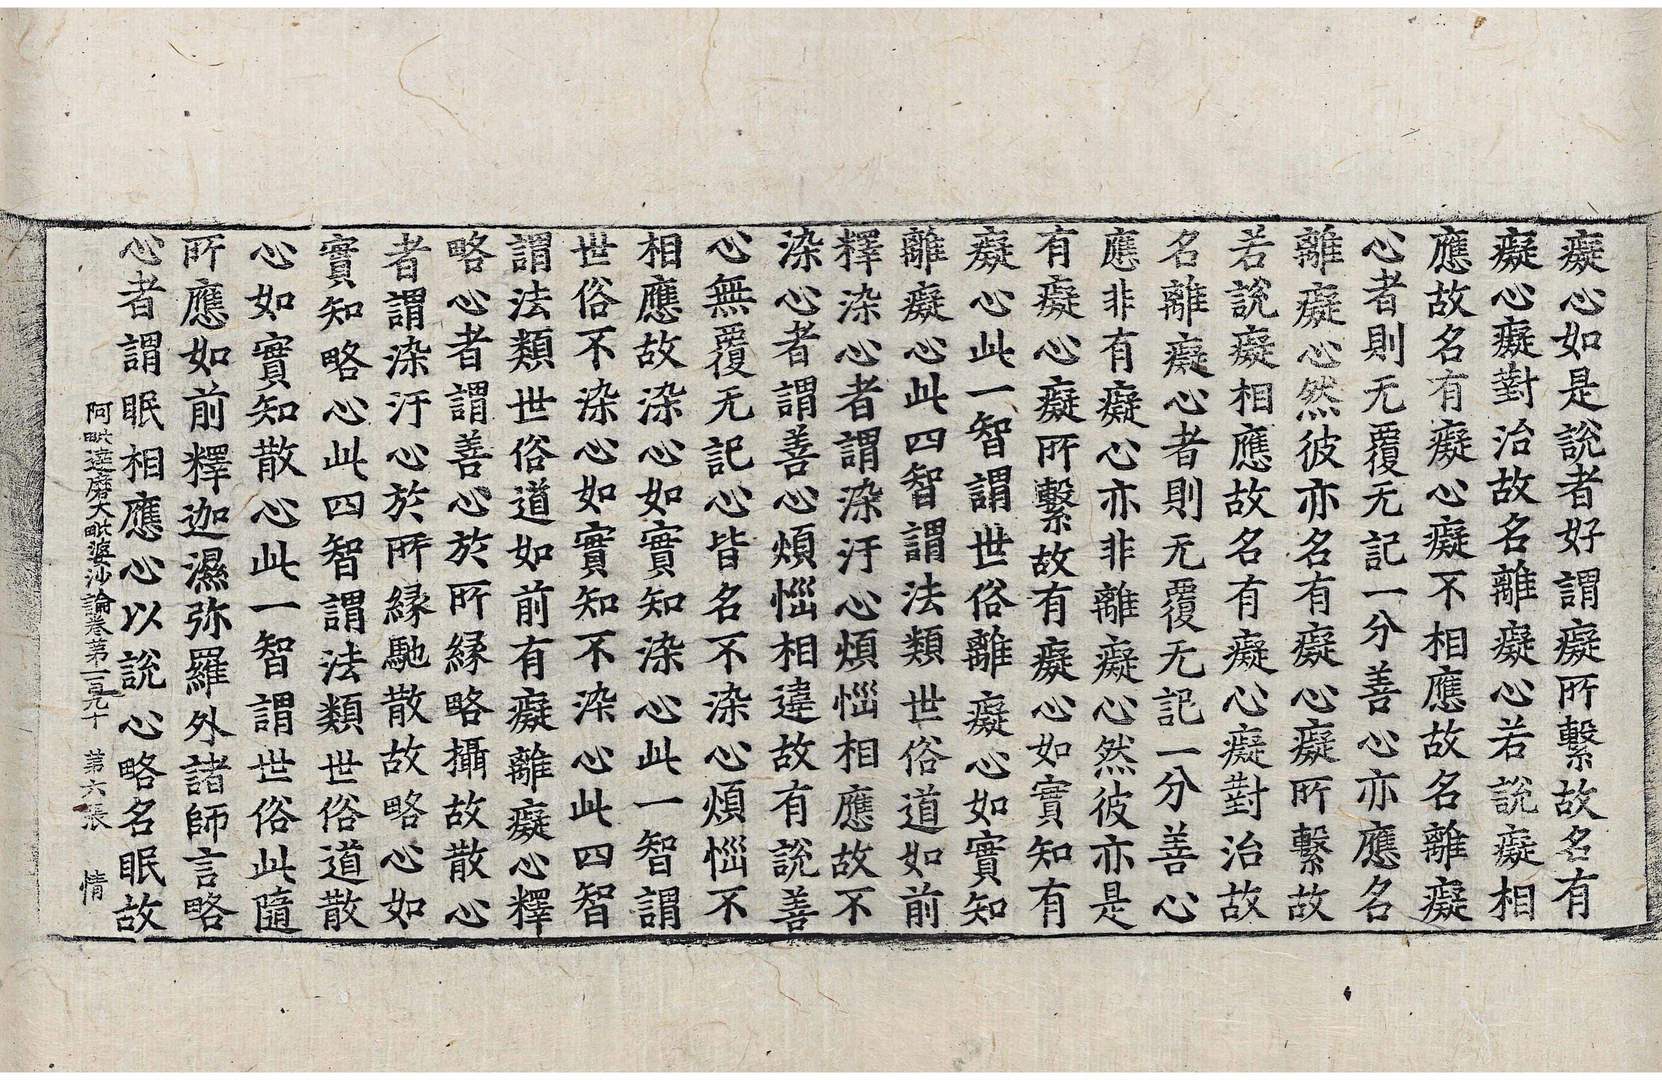 癡心如是說者好謂癡所繫故名有
癡心癡對治故名離癡心若說癡相
應故名有癡心癡不相應故名離癡
心者則无覆无記一分善心亦應名
離癡心然彼亦名有癡心癡所繫故
若說癡相應故名有癡心癡對治故
名離癡心者則无覆无記一分善心
應非有癡心亦非離癡心然彼亦是
有癡心癡所繫故有癡心如實知有
癡心此一智謂世俗離癡心如實知
離癡心此四智謂法類世俗道如前
釋染心者謂染汙心煩惱相應故不
染心者謂善心煩惱相違故有說善
心無覆无記心皆名不染心煩惱不
相應故染心如實知染心此一智謂
世俗不染心如實知不染心此四智
謂法類世俗道如前有癡離癡心釋
略心者謂善心於所緣略攝故散心
者謂染汙心於所緣馳散故略心如
實知略心此四智謂法類世俗道散
心如實知散心此一智謂世俗此隨
所應如前釋迦濕弥羅外諸師言略
心者謂眠相應心以說心略名眠故
阿毗達磨大毗婆沙論卷第一百九十 第六張 情